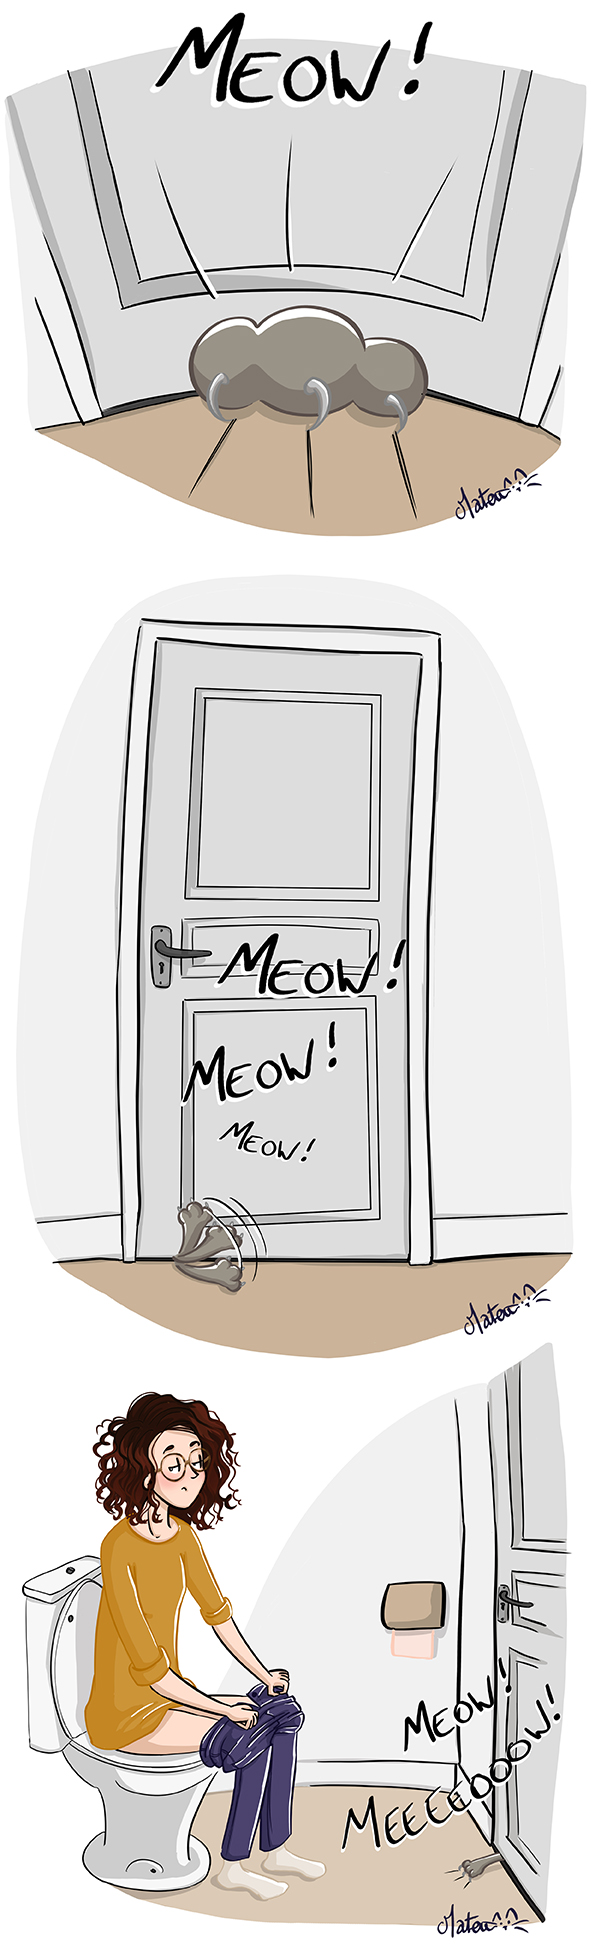 MEOW!
Mateu
MEOW!
MEOW!
MEOW!
Mateu
MEOW!
MEEEEOOOOW!
Mateu